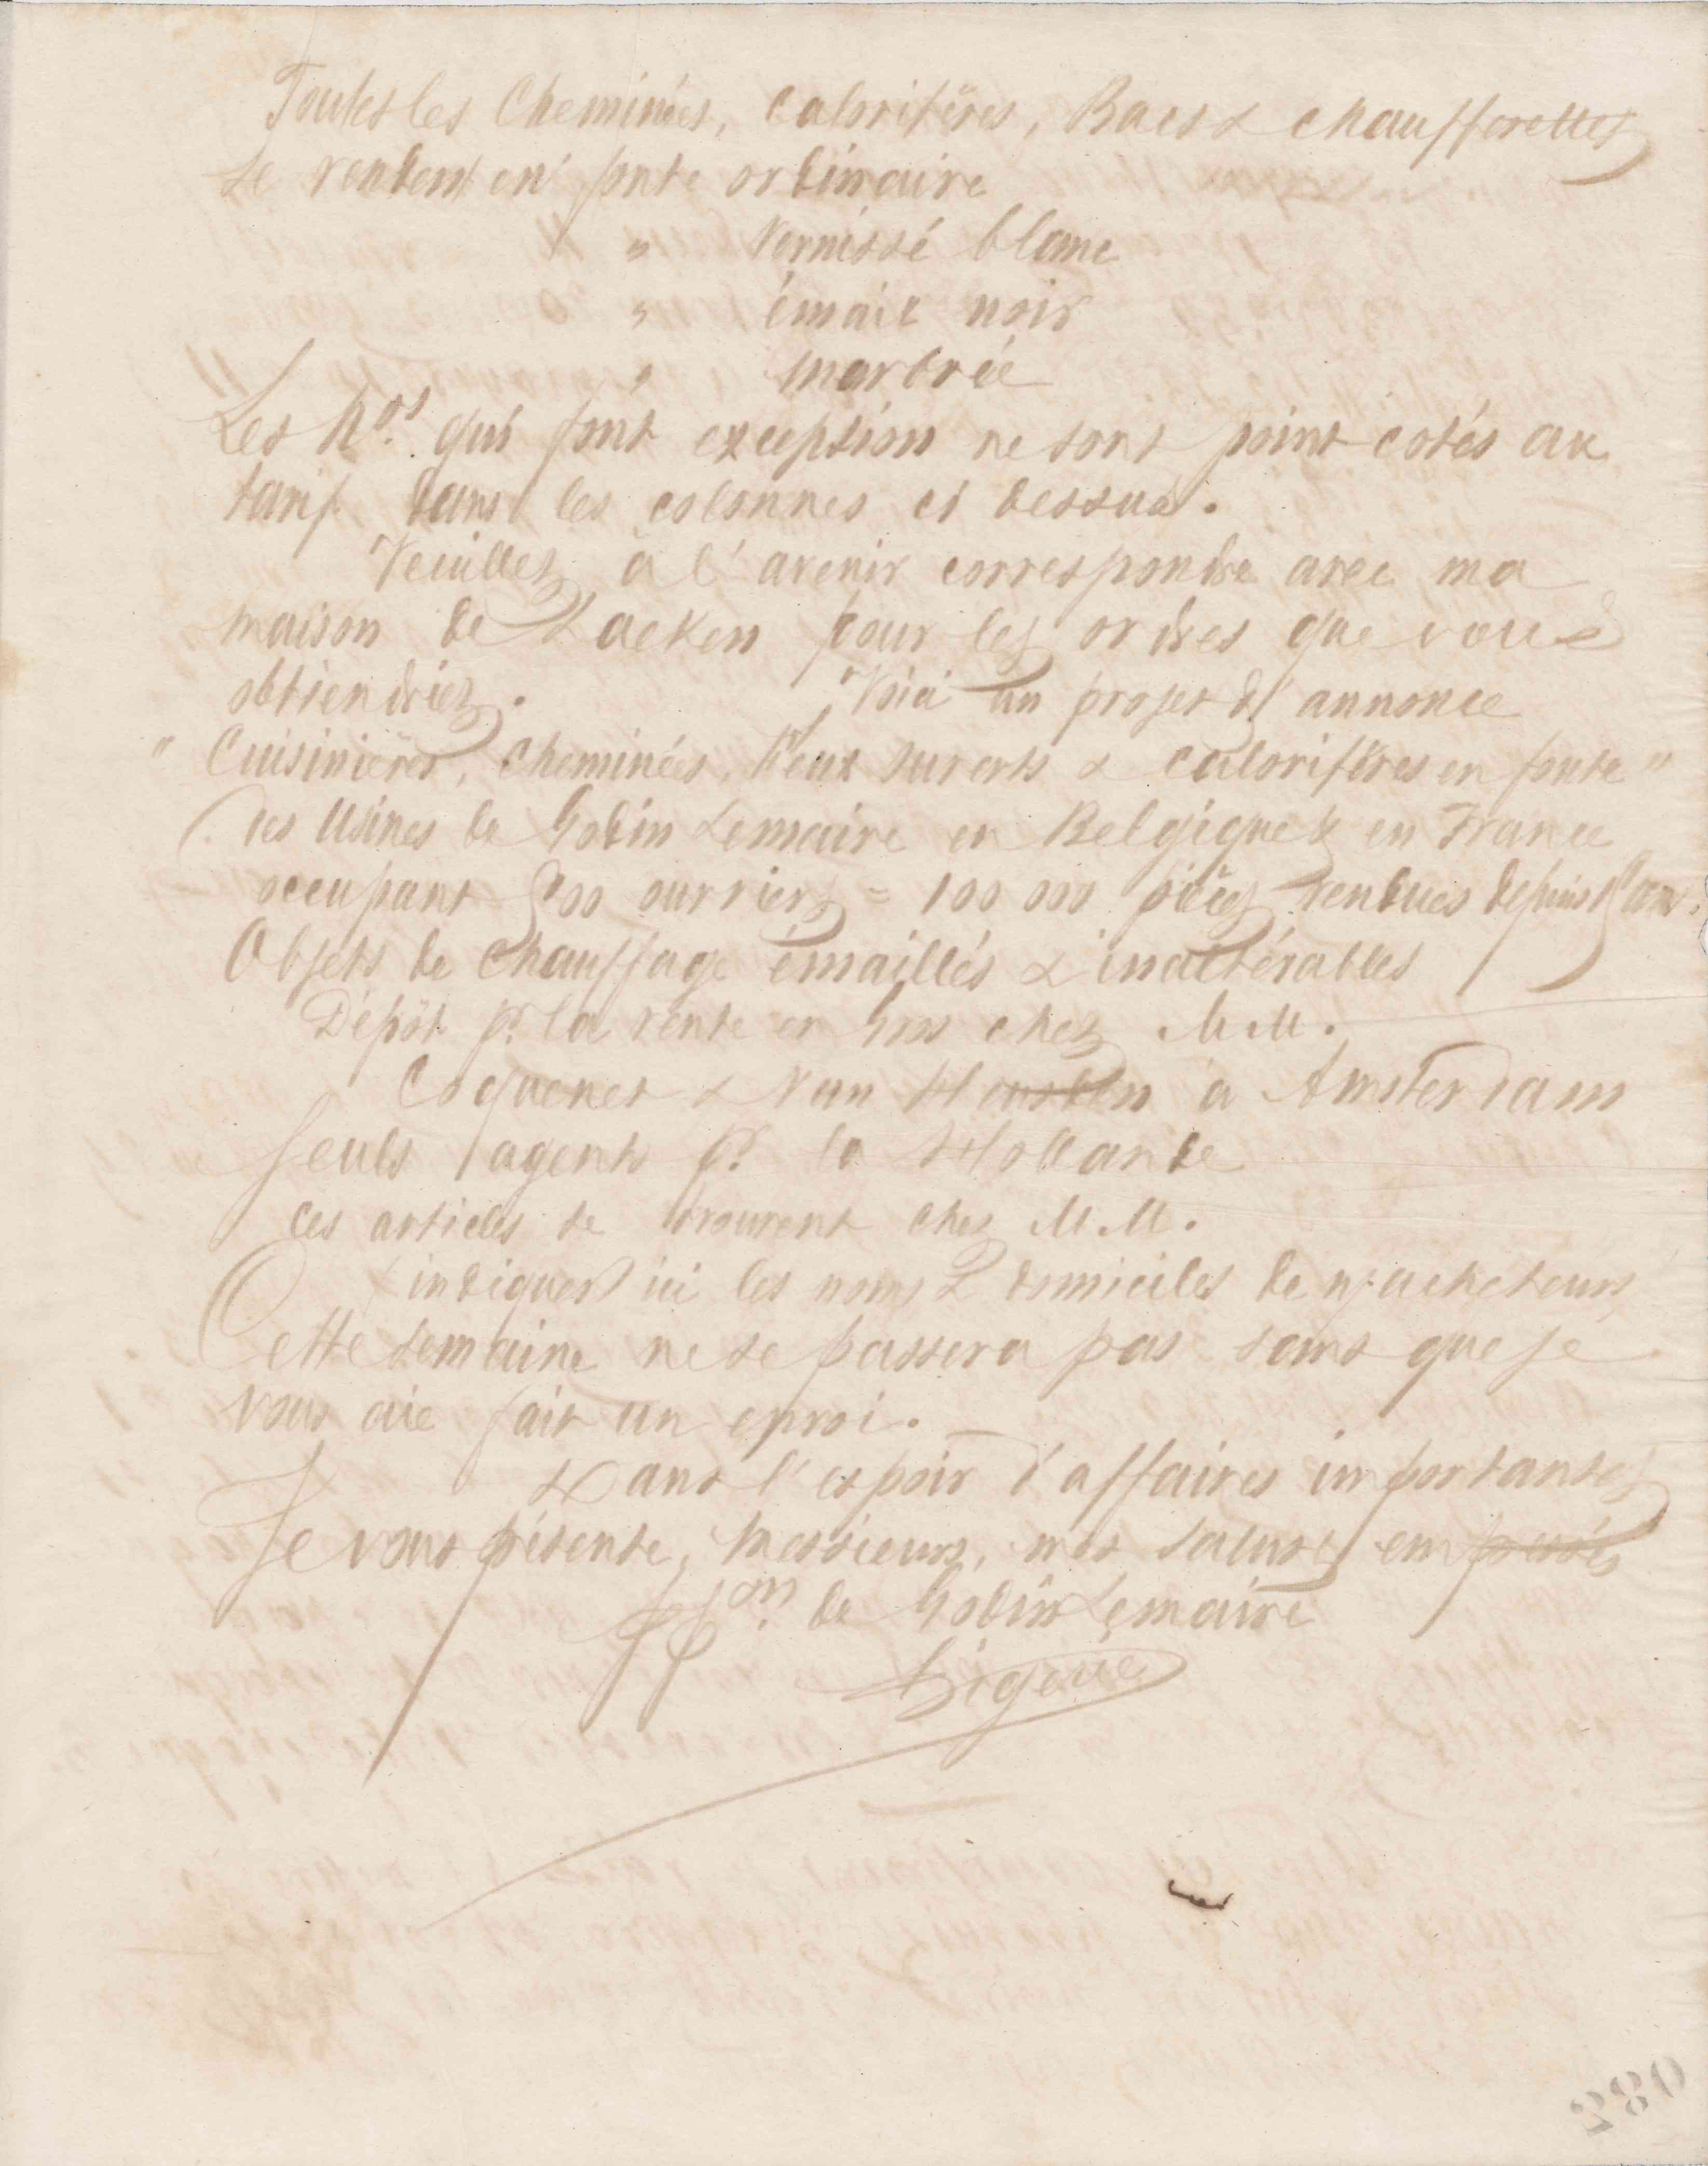 Toutes les Cheminées, Calorifères, Bacs & chaufferettes
se vendent en fonte ordinaire
" Vernissé blanc
" émail noir
" marbrée
Les Nos. qui font exception ne sont point cotés au
tarif dans les colonnes ci dessus.
Veuillez à l'avenir correspondre avec ma
maison de Laeken pour les ordres que vous
obtiendriez. Voici un projet d'annonce
" Cuisinières, Cheminées, feux ouverts & calorifères en fonte "
des Usines de Godin Lemaire en Belgique & en France
occupant 700 ouvriers = 100 000 pièces vendues depuis
Objets de chauffage émaillés & inaltérables
Dépôt pr. la vente en gros chez M.M.
Coquenet & Van à Amsterdam
Seuls agents pr. la Hollande
ces articles se trouvent chez M.M.
(indiquer ici les noms & domiciles de nos acheteurs
Cette semaine ne se passera pas sans que je
vous aie fait un envoi.
Dans l'espoir d'affaires importantes
Je vous présente, Messieurs, mes saluts empressés
ppon. de Godin Lemaire
280